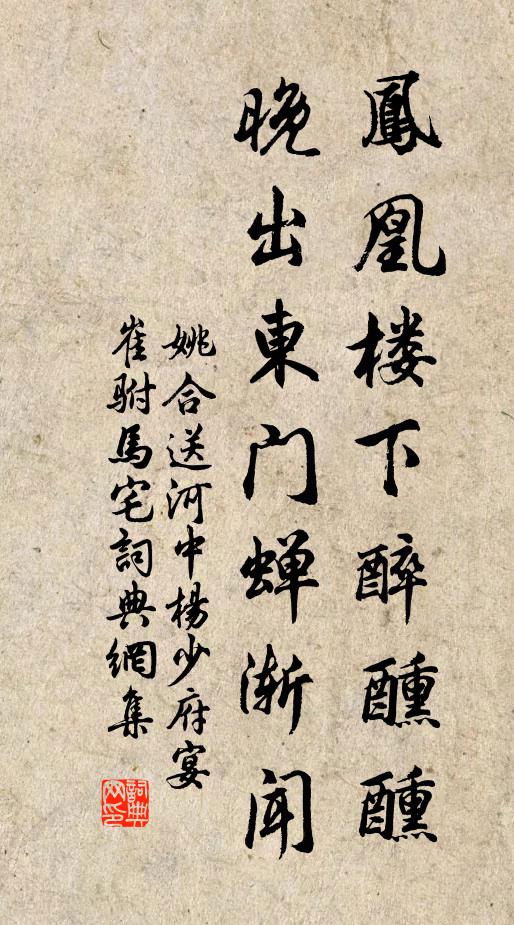 鳳凰楼下醉醺醺
晚出東门蝉渐闻
姚合送河中楊少府宴
崔駙馬宅詞典網集
詞典
网印